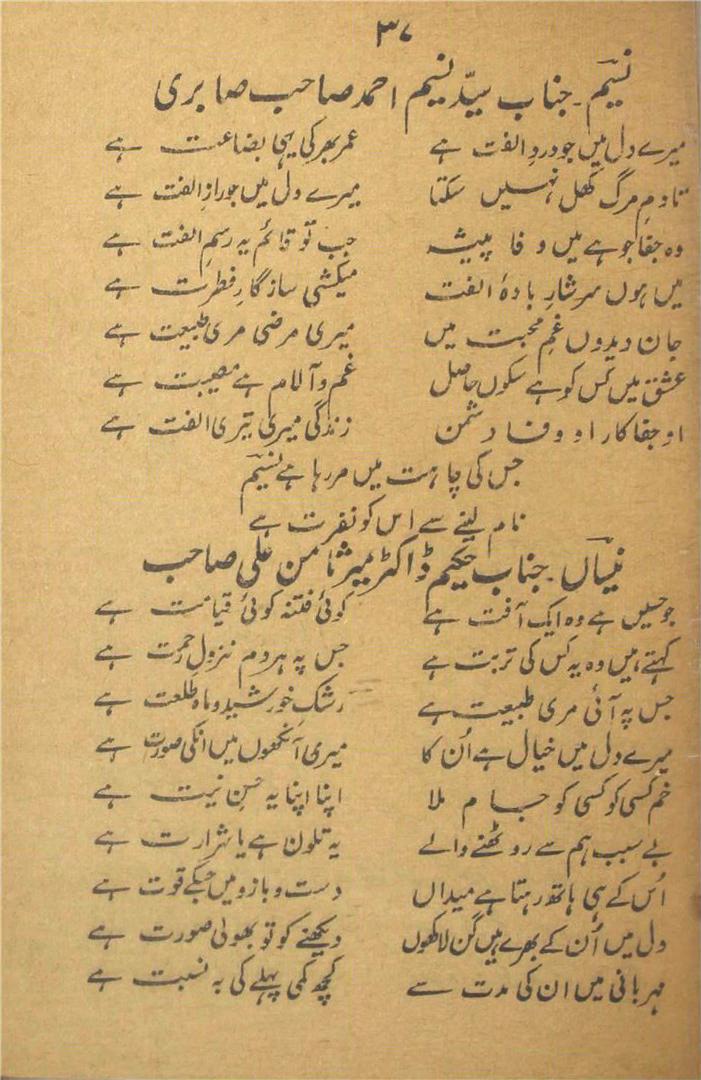 ۳۷
نسیمؔ۔ جناب سیّد نسیم احمد صاحب صابری
میرے دل میں جو دردِ الفت ہے عمر بھر کی یہی بضاعت ہے
تا دمِ مرگ کھل نہیں سکتا میرے دل میں جو رازِ الفت ہے
وہ جفا جو ہے میں وفا پیشہ جب تو قائم یہ رسمِ الفت ہے
میں ہوں سرشارِ بادۂ الفت میکشی سازگارِ فطرت ہے
جان دیدوں غمِ محبت میں میری مرضی مری طبیعت ہے
عشق میں کس کو ہے سکوں حاصل غم و آلام ہے مصیبت ہے
او جفا کار او وفا دشمن زندگی میری تیری الفت ہے
جس کی چاہت میں مر رہا ہے نسیمؔ
نام لینے سے اس کو نفرت ہے
نیساںؔ۔ جناب حکیم ڈاکٹر میر ضامن علی صاحب
جو حسیں ہے وہ ایک آفت ہے کوئی فتنہ کوئی قیامت ہے
کہتے ہیں وہ یہ کس کی تربت ہے جس پہ ہر دم نزولِ رحمت ہے
جس پہ آئی مری طبیعت ہے رشکِ خورشید و ماہ طلعت ہے
میرے دل میں خیال ہے اُن کا میری آنکھوں میں انکی صورت ہے
خم کسی کو کسی کو جام ملا اپنا اپنا یہ حسنِ نیت ہے
بے سبب ہم سے روٹھنے والے یہ تلون ہے یا شرارت ہے
اُس کے ہی ہاتھ رہتا ہے میداں دست و بازو میں جسکے قوت ہے
دل میں اُن کے بھرے ہیں گن لاکھوں دیکھنے کو تو بھولی صورت ہے
مہربانی میں ان کی مدت سے کچھ کمی پہلے کی بہ نسبت ہے